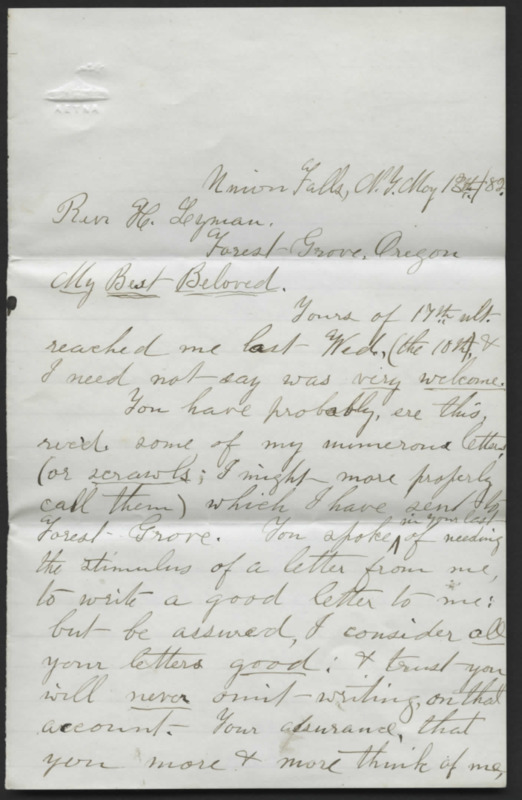 Union Falls, N.Y. May 12th/82.
Rev. H. Lyman.
Forest Grove, Oregon
My Best Beloved.
Yours of 17th ult.
reached me last Wed., (the 10th), &
I need not say was very welcome.
You have probably, ere this,
rec'd. some of my numerous letters
(or scrawls; I might more properly
call them) which I have sent to
Forest Grove. You spoke in your last of needing
the stimulus of a letter from me,
to write a good letter to me:
but be assured, I consider all
your letters good: & trust you
will never omit writing, on that
account. Your assurance, that
you more & more think of me,